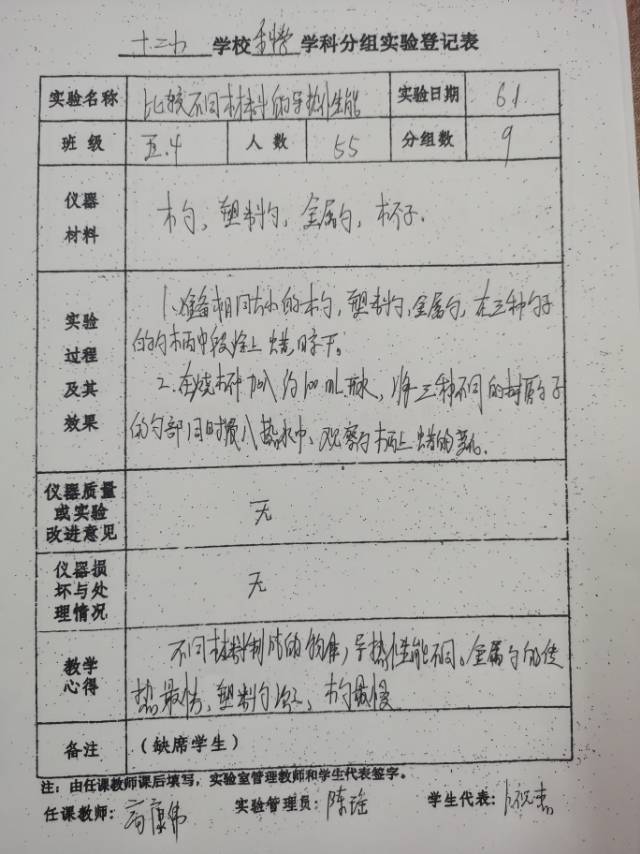 十二小 学校 科学 学科分组实验登记表
实验名称 比较不同材料的导热性能 实验日期 6.1
班 级 五.4 人 数 55 分组数 9
仪器材料 木勺、塑料勺、金属勺、杯子.
实验过程及其效果 1.准备相同大小的木勺,塑料勺,金属勺,在三种勺子
的勺柄中段涂上蜡,晾干。
2.在烧杯中加入约100mL热水,将三种不同的材质勺子
的勺部同时放入热水中、观察勺柄上蜡的变化.
仪器质量或实验改进意见 无
仪器损坏与处理情况 无
教学心得 不同材料制成的物体,导热性能不同。金属勺的传
热最快,塑料勺次之,木勺最慢
备注 (缺席学生)
注:由任课教师课后填写,实验室管理教师和学生代表签字。
任课教师: 高康伟 实验管理员: 陈瑶 学生代表: